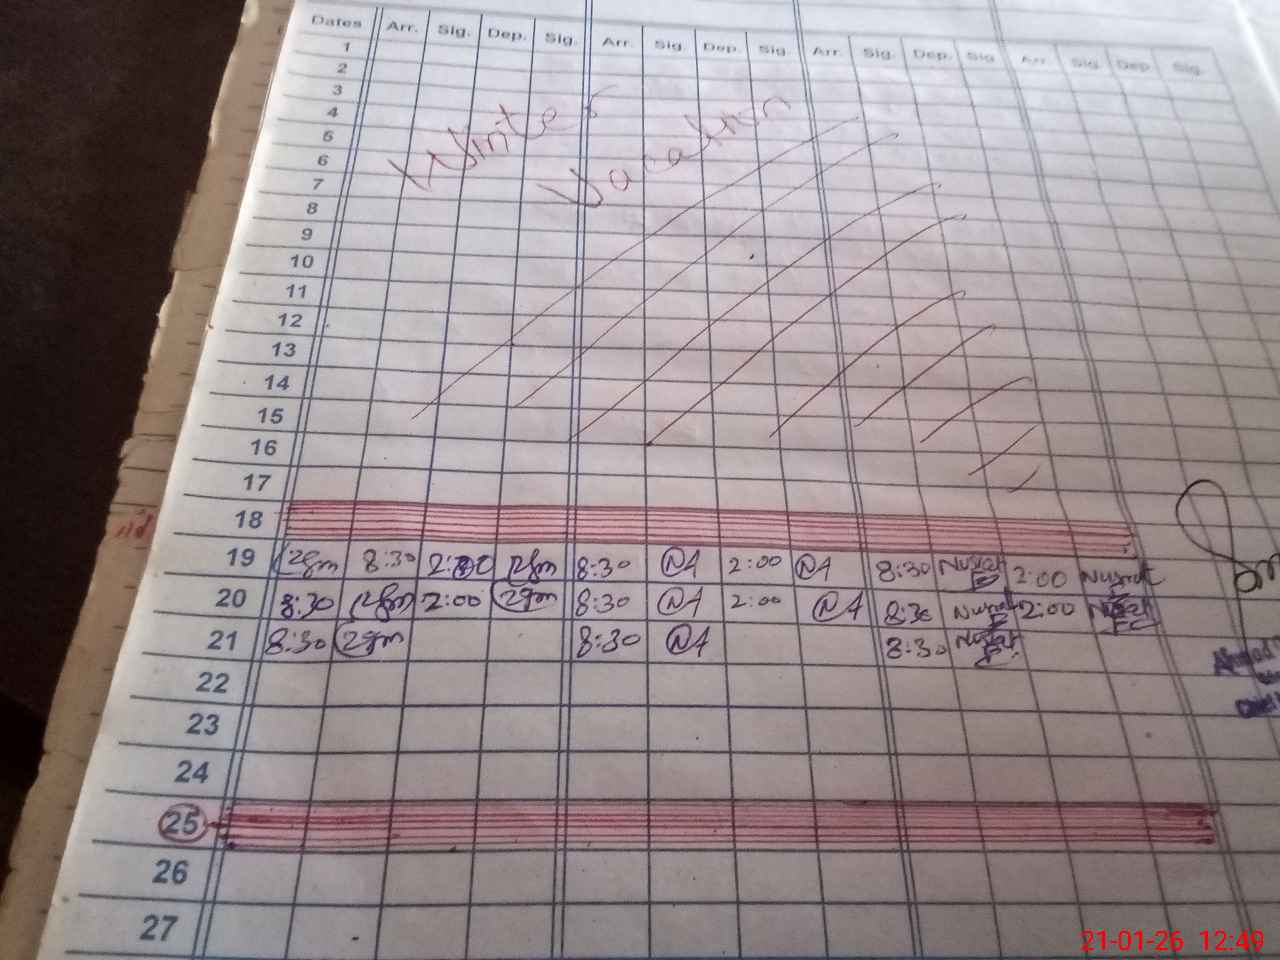 Dates Arr. Sig. Dep. Sig. Arr. Sig. Dep. Sig. Arr. Sig. Dep. Sig. Arr. Sig. Dep. Sig.
1
2
3
4
Winter
5
Vacation
6
7
8
9
10
11
12
13
14
15
16
17
18
19 8:30 2:00 8:30 NA 2:00 NA 8:30 Nusrat 2:00 Nusrat
20 8:30 2:00 8:30 NA 2:00 NA 8:30 Nusrat 2:00 Nusrat
21 8:30 8:30 NA 8:30 Nusrat
22
23
24
25
26
27
21-01-26 12:49